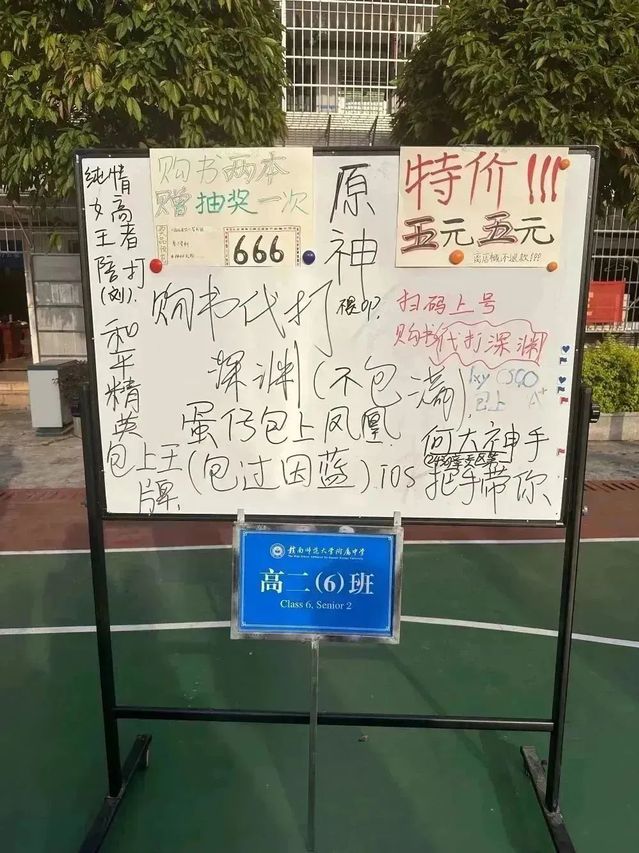 纯情女高
王者陪打
(刘).
和平精英
包上王牌
购书两本
赠抽奖一次
666
原神
特价!!!
五元五元
离店概不退款!!!
购书代打
深渊(不包满),
蛋仔包上凤凰
(包过因蓝)iOS
扫码上号
购书代打深渊
lxy CSGO
包上 A+
何大神手
把手带你
赣南师范大学附属中学
高二(6)班
Class 6, Senior 2